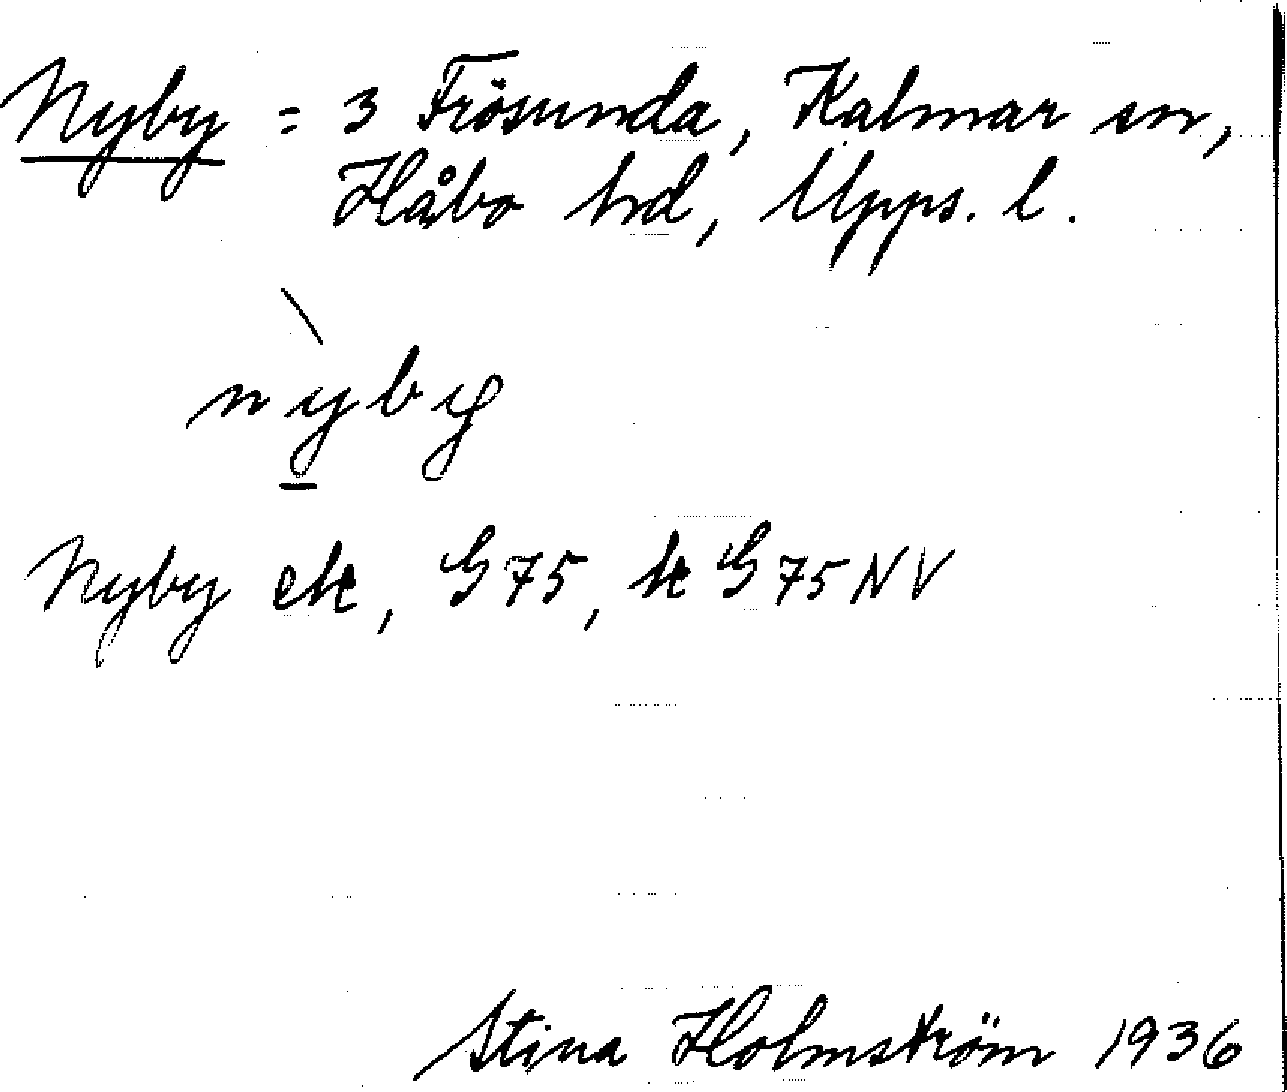 Nyby = 3 Frösunda, Kalmar sn,
Håbo hd, Upps. l.
nỳby
Nyby ek, G75, k G75NV
Stina Holmström 1936